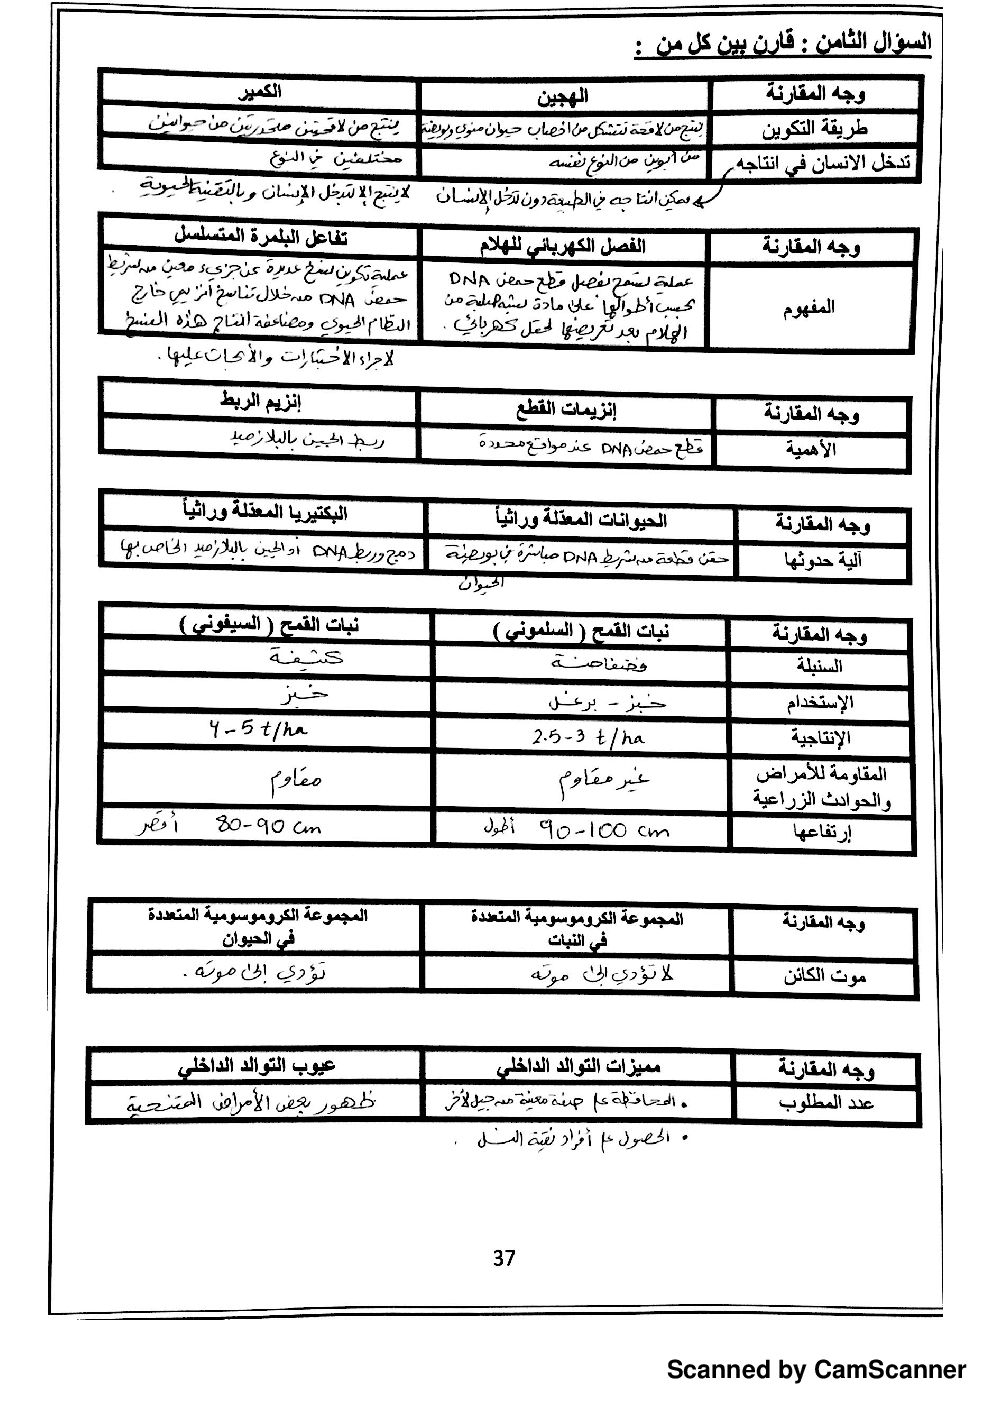 السؤال الثامن : قارن بين كل من :
وجه المقارنة الهجين الكمير
طريقة التكوين ينتج من لاقحة تتشكل من اخصاب حيوان منوي وبويضة ينتج من لاقحتين منحدرتين من حيوانين
تدخل الانسان في انتاجه من أبوين من النوع نفسه مختلفين في النوع
يمكن انتاجه في الطبيعة دون تدخل الإنسان لا ينتج إلا بتدخل الإنسان وبالتقنية الحيوية .
وجه المقارنة الفصل الكهربائي للهلام تفاعل البلمرة المتسلسل
المفهوم
عملية تسمح بفصل قطع حمض DNA
بحسب أطوالها على مادة شبه صلبة من
الهلام بعد تعريضها لحقل كهربائي .
عملية تكوين نسخ عديدة عن جزيء معين من شريط
حمض DNA من خلال تناسخ أنزيمي خارج
النظام الحيوي ومضاعفة انتاج هذه النسخ
لاجراء الاختبارات والأبحاث عليها .
وجه المقارنة إنزيمات القطع إنزيم الربط
الأهمية قطع حمض DNA عند مواقع محددة ربط الجين بالبلازميد
وجه المقارنة الحيوانات المعدّلة وراثياً البكتيريا المعدّلة وراثياً
آلية حدوثها حقن قطعة من شريط DNA مباشرة في بويضة دمج وربط DNA أو الجين بالبلازميد الخاص بها
الحيوان
وجه المقارنة نبات القمح ( السلموني ) نبات القمح ( السيفوني )
السنبلة فضفاضة كثيفة
الإستخدام خبز - برغل خبز
الإنتاجية 2.5-3 t/ha 4-5 t/ha
المقاومة للأمراض والحوادث الزراعية غير مقاوم مقاوم
إرتفاعها 90-100 cm أطول 80-90 cm أقصر
وجه المقارنة المجموعة الكروموسومية المتعددة في النبات المجموعة الكروموسومية المتعددة في الحيوان
موت الكائن لا تؤدي الى موته تؤدي الى موته .
وجه المقارنة مميزات التوالد الداخلي عيوب التوالد الداخلي
عدد المطلوب • المحافظة على صفة معينة من جيل لآخر ظهور بعض الأمراض المتنحية
• الحصول على أفراد نقية النسل .
37
Scanned by CamScanner